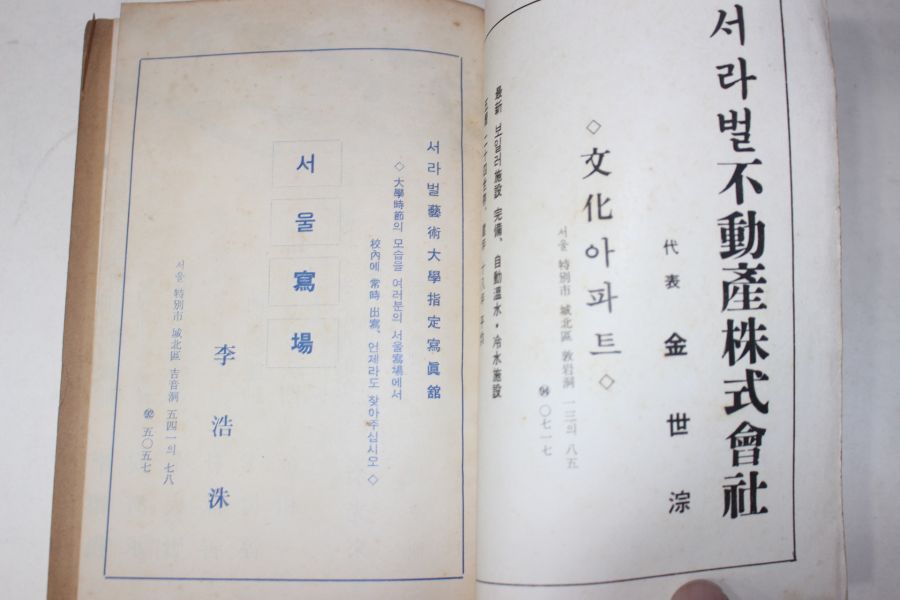 서라벌不動產株式會社
代表 金世淙
◇文化아파트◇
서울 特別市 城北區 敦岩洞 一三의 八五
〇七一七
最新 보일러施設 完備、自動溫水・冷水施設
서라벌藝術大學指定寫眞舘
◇大學時節의 모습을 여러분의 서울寫場에서
校內에 常時 出寫、언제라도 찾아주십시오◇
서울寫場
李浩洙
서울 特別市 城北區 吉音洞 五四一의 七八
五〇五七